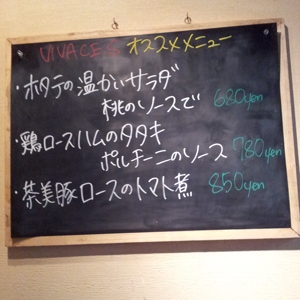 VIVACEよ オススメメニュー
・ホタテの温かいサラダ
桃のソースで 680yen
・鶏ロースハムのタタキ
ポルチーニのソース 780yen
・茶美豚ロースのトマト煮 850yen